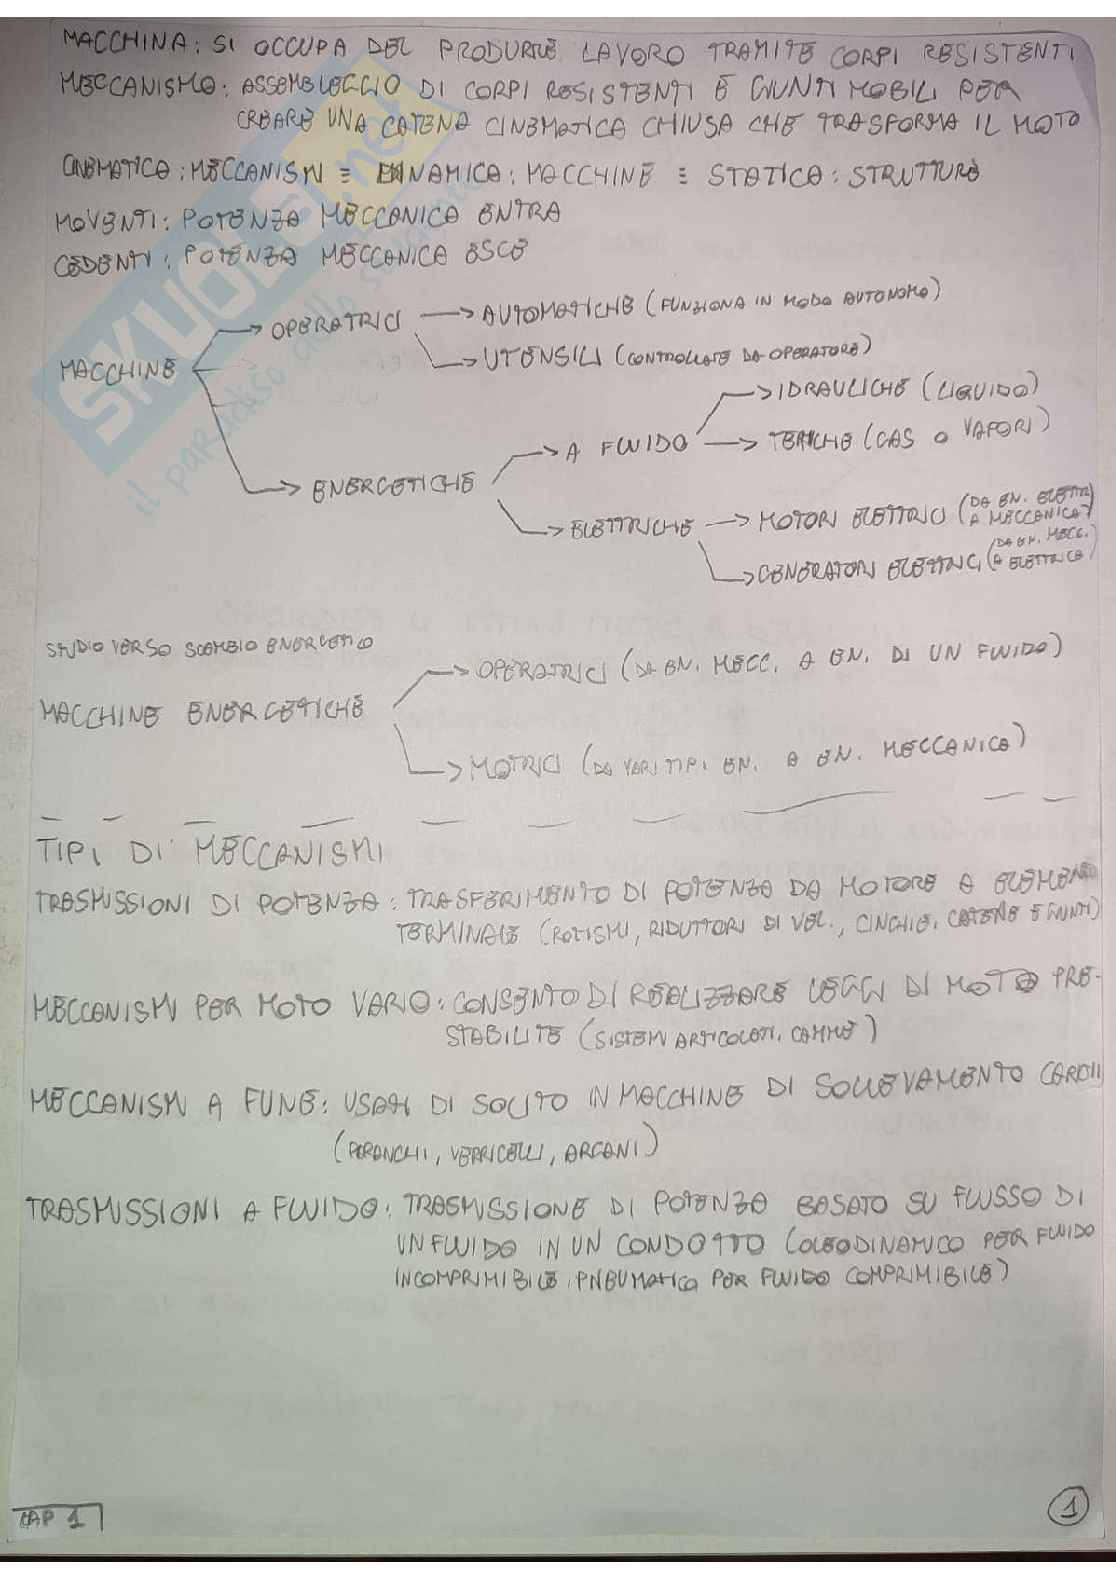 MACCHINA: SI OCCUPA DEL PRODURRE LAVORO TRAMITE CORPI RESISTENTI
MECCANISMO: ASSEMBLEGGIO DI CORPI RESISTENTI E GIUNTI MOBILI PER
CREARE UNA CATENA CINEMATICA CHIUSA CHE TRASFORMA IL MOTO
CINEMATICA: MECCANISMI = DINAMICA: MACCHINE = STATICA: STRUTTURE
MOVENTI: POTENZA MECCANICA ENTRA
CEDENTI: POTENZA MECCANICA ESCE
MACCHINE
OPERATRICI
AUTOMATICHE (FUNZIONA IN MODO AUTONOMO)
UTENSILI (CONTROLLATE DA OPERATORE)
ENERGETICHE
A FLUIDO
IDRAULICHE (LIQUIDO)
TERMICHE (GAS O VAPORI)
ELETTRICHE
MOTORI ELETTRICI (DA EN. ELETTR. A MECCANICA)
GENERATORI ELETTRICI (DA EN. MECC. A ELETTRICA)
STUDIO VERSO SCAMBIO ENERGETICO
MACCHINE ENERGETICHE
OPERATRICI (DA EN. MECC. A EN. DI UN FLUIDO)
MOTRICI (DA VARI TIPI EN. A EN. MECCANICA)
TIPI DI MECCANISMI
TRASMISSIONI DI POTENZA: TRASFERIMENTO DI POTENZA DA MOTORE A ELEMENTO
TERMINALE (ROTISMI, RIDUTTORI DI VEL., CINGHIE, CATENE E GIUNTI)
MECCANISMI PER MOTO VARIO: CONSENTO DI REALIZZARE LEGGI DI MOTO PRE-
STABILITE (SISTEMI ARTICOLATI, CAMME)
MECCANISMI A FUNE: USATI DI SOLITO IN MACCHINE DI SOLLEVAMENTO CARICHI
(PARANCHI, VERRICELLI, ARGANI)
TRASMISSIONI A FLUIDO: TRASMISSIONE DI POTENZA BASATO SU FLUSSO DI
UN FLUIDO IN UN CONDOTTO (OLEODINAMICO PER FLUIDO
INCOMPRIMIBILE, PNEUMATICO PER FLUIDO COMPRIMIBILE)
CAP 1
1
SKUOLA.net
il paradiso dello studente